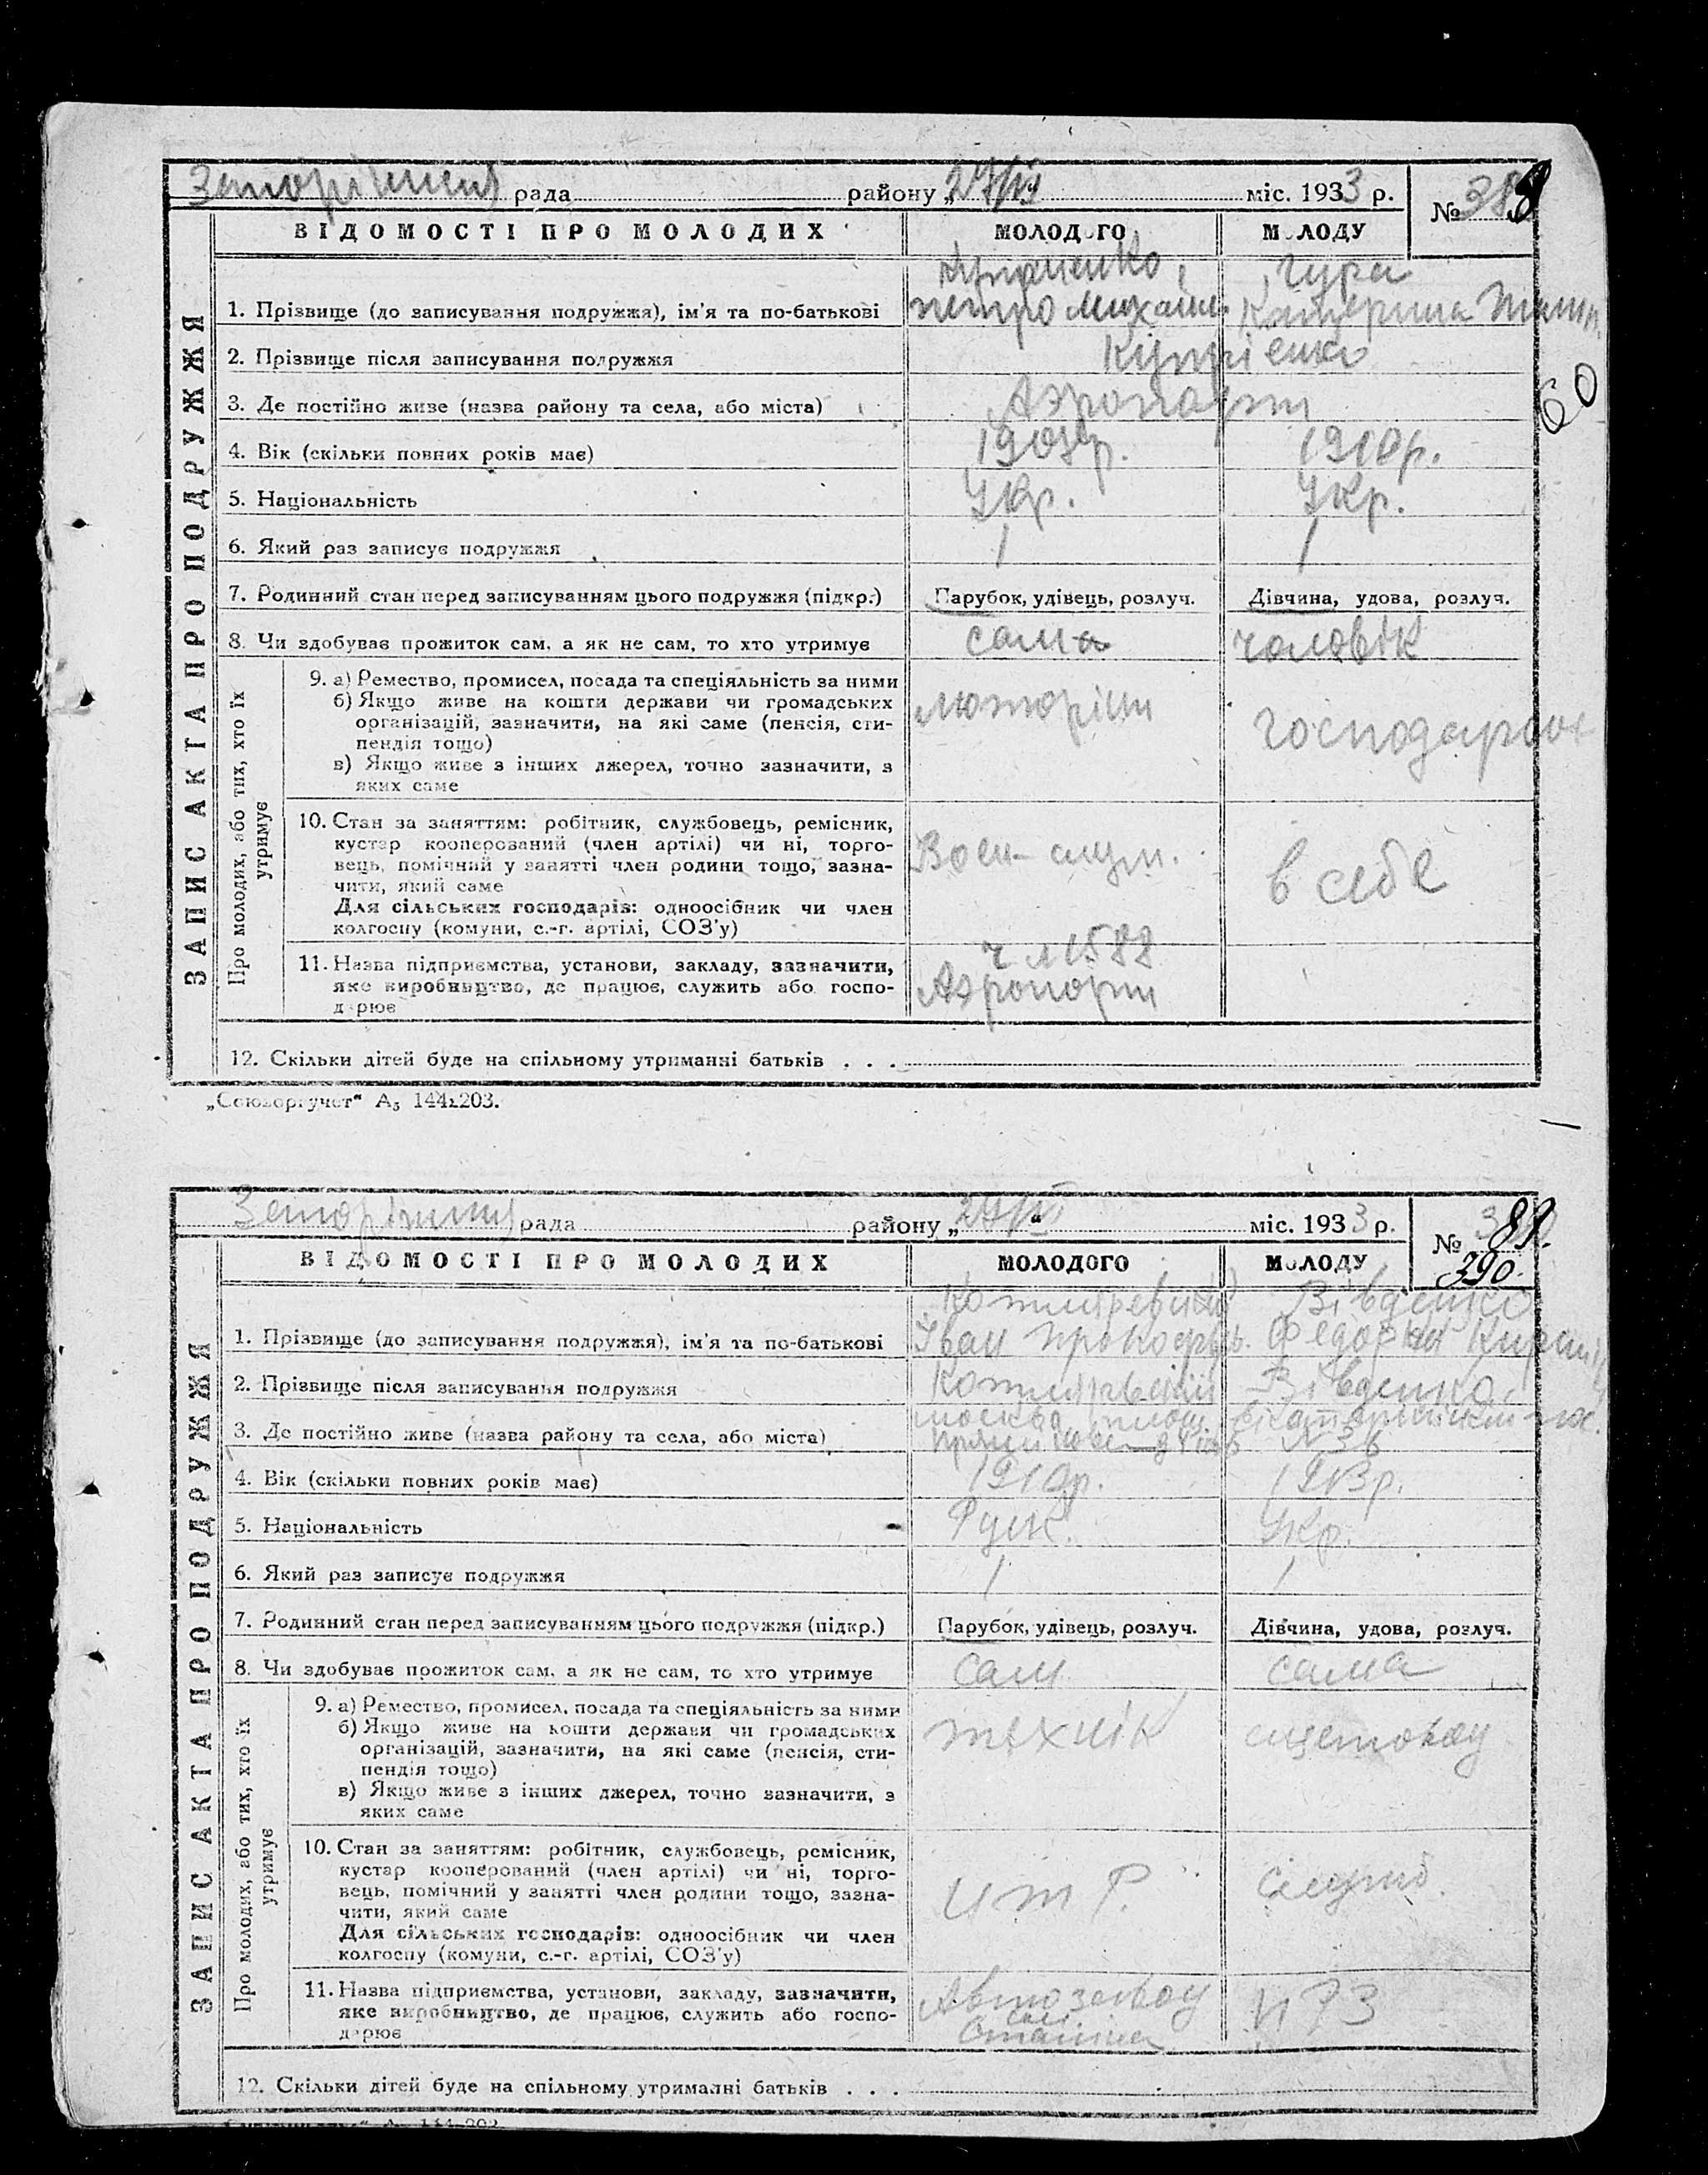 рада района „27/VI“ міс. 1933 р. № 388
ВІДОМОСТІ ПРО МОЛОДИХ МОЛОДОГО МОЛОДУ
ЗАПИС АКТА ПРО ПОДРУЖЖЯ
Чура
1. Прізвище (до записування подружжя), ім'я та по-батькові Петро Михайл. Катерина
2. Прізвище після записування подружжя
3. Де постійно живе (назва району та села, або міста) Аэропорт
60
4. Вік (скільки повних років має) 1910р.
5. Національність Укр. Укр.
6. Який раз записує подружжя 1 1
7. Родинний стан перед записуванням цього подружжя (підкр.) Парубок, удівець, розлуч. Дівчина, удова, розлуч.
8. Чи здобуває прожиток сам, а як не сам, то хто утримує сам чоловік
Про молодих, або тих, хто їх утримує
9. а) Ремество, промисел, посада та спеціяльність за ними
б) Якщо живе на кошти держави чи громадських
організацій, зазначити, на які саме (пенсія, сти-
пендія тощо)
в) Якщо живе з інших джерел, точно зазначити, з
яких саме
10. Стан за заняттям: робітник, службовець, ремісник,
кустар кооперований (член артілі) чи ні, торго-
вець, помічний у занятті член родини тощо, зазна-
чити, який саме
Для сільських господарів: одноосібник чи член
колгоспу (комуни, с.-г. артілі, СОЗ'у)
в себе
11. Назва підприємства, установи, закладу, зазначити,
яке виробництво, де працює, служить або госпо-
дарює
Аэропорт
12. Скільки дітей буде на спільному утриманні батьків . . .
„Союзоргучет“ А₅ 144х203.
рада району „ “ міс. 1933 р. № 89.
390.
ВІДОМОСТІ ПРО МОЛОДИХ МОЛОДОГО МОЛОДУ
ЗАПИС АКТА ПРО ПОДРУЖЖЯ
Вівденко
1. Прізвище (до записування подружжя), ім'я та по-батькові Іван Прокоф.
2. Прізвище після записування подружжя Вівденко
3. Де постійно живе (назва району та села, або міста) Москва
4. Вік (скільки повних років має) 1910р. 1913р.
5. Національність Руск. Укр.
6. Який раз записує подружжя 1 1
7. Родинний стан перед записуванням цього подружжя (підкр.) Парубок, удівець, розлуч. Дівчина, удова, розлуч.
8. Чи здобуває прожиток сам, а як не сам, то хто утримує сам сама
Про молодих, або тих, хто їх утримує
9. а) Ремество, промисел, посада та спеціяльність за ними
б) Якщо живе на кошти держави чи громадських
організацій, зазначити, на які саме (пенсія, сти-
пендія тощо)
в) Якщо живе з інших джерел, точно зазначити, з
яких саме
технік
10. Стан за заняттям: робітник, службовець, ремісник,
кустар кооперований (член артілі) чи ні, торго-
вець, помічний у занятті член родини тощо, зазна-
чити, який саме
Для сільських господарів: одноосібник чи член
колгоспу (комуни, с.-г. артілі, СОЗ'у)
ИТР.
11. Назва підприємства, установи, закладу, зазначити,
яке виробництво, де працює, служить або госпо-
дарює
Автозавод
Сталіна
12. Скільки дітей буде на спільному утриманні батьків . . .